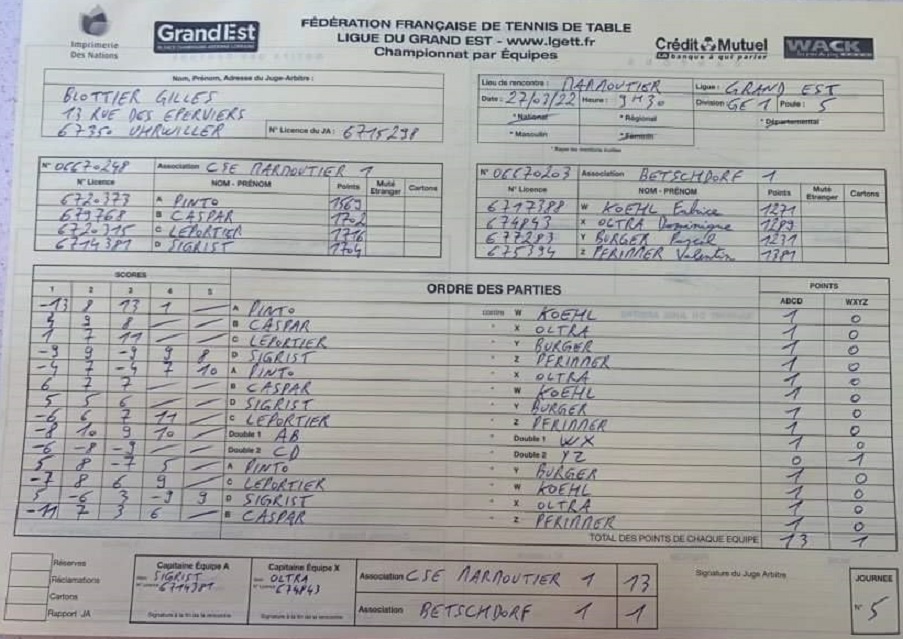 Imprimerie
Des Nations
GrandEst
FÉDÉRATION FRANÇAISE DE TENNIS DE TABLE
LIGUE DU GRAND EST - www.lgett.fr
Championnat par Équipes
Crédit Mutuel
la banque à qui parler
WACK
Nom, Prénom, Adresse du Juge-Arbitre :
BLOTTIER GILLES
13 RUE DES EPERVIERS
67350 UHRWILLER
N° Licence du JA : 6715298
Lieu de rencontre : MARMOUTIER Ligue : GRAND EST
Date : 27/03/22 Heure : 9H30 Division GE1 Poule : 5
* National * Régional * Départemental
* Masculin * Féminin
* Rayer les mentions inutiles
N° 06670248 Association CSE MARMOUTIER 1
N° Licence NOM - PRÉNOM Points Muté Etranger Cartons
6720373 A PINTO 1569
679768 B CASPAR 1702
6720315 C LEPORTIER 1716
6714381 D SIGRIST 1704
N° 06670203 Association BETSCHDORF 1
N° Licence NOM - PRÉNOM Points Muté Etranger Cartons
6717388 W KOEHL Fabrice 1271
674843 X OLTRA Dominique 1289
677283 Y BURGER Pascal 1231
675394 Z PFRIMMER Valentin 1381
SCORES ORDRE DES PARTIES POINTS
1 2 3 4 5 ABCD WXYZ
-13 8 13 1 A PINTO contre W KOEHL 1 0
9 8 B CASPAR " X OLTRA 1 0
1 7 11 C LEPORTIER " Y BURGER 1 0
-9 9 -9 9 8 D SIGRIST " Z PFRIMMER 1 0
-4 7 -4 7 10 A PINTO " X OLTRA 1 0
6 7 7 B CASPAR " W KOEHL 1 0
5 5 6 D SIGRIST " Y BURGER 1 0
-6 6 7 11 C LEPORTIER " Z PFRIMMER 1 0
-8 10 9 10 Double 1 AB " Double 1 WX 1 0
-6 -8 -9 Double 2 CD Double 2 YZ 0 1
5 8 -7 5 A PINTO " Y BURGER 1 0
-7 8 6 9 C LEPORTIER " W KOEHL 1 0
5 -6 3 -9 9 D SIGRIST " X OLTRA 1 0
-11 7 3 6 B CASPAR " Z PFRIMMER 1 0
TOTAL DES POINTS DE CHAQUE EQUIPE 13 1
Réserves
Réclamations
Cartons
Rapport JA
Capitaine Équipe A
SIGRIST
6714381
Signature à la fin de la rencontre
Capitaine Équipe X
OLTRA
674843
Signature à la fin de la rencontre
Association CSE MARMOUTIER 1 13
Association BETSCHDORF 1 1
Signature du Juge Arbitre
JOURNÉE
N° 5